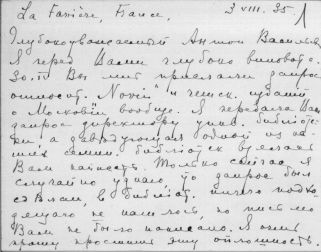 La Farrière, France. 3 VIII. 35 1
Глубокоуважаемый Антон Васильев
Я перед Вами глубоко виновата.
30.IV Вы мне прислали запрос
относит. "Novin" и чешск. изданий
о Московии вообще. Я передала Ваш
запрос директору унив. библиоте-
ки, а заведующая одной из на-
ших семин. библиотек
Вам написать. Только сейчас я
случайно узнала, что запрос был
сделан, в библиот. ничего подхо-
дящего не нашлось, но письмо
Вам не было написано. Я очень
прошу простить эту оплошность